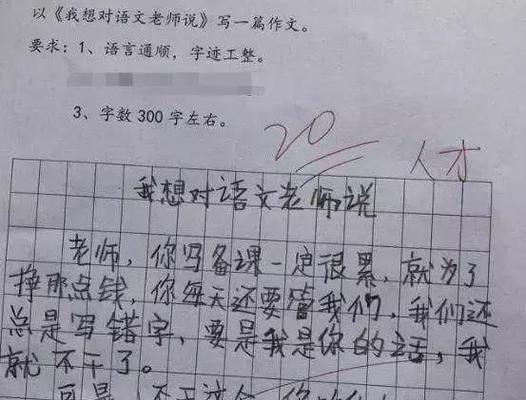 以《我想对语文老师说》写一篇作文。
要求：1、语言通顺，字迹工整。
3、字数300字左右。
20
人才
我想对语文老师说
老师，你写备课一定很累，就为了
挣那点钱，你每天还要管我们，我们还
总是写错字，要是我是你的话，我
就不干了。
可是，不干这个，你